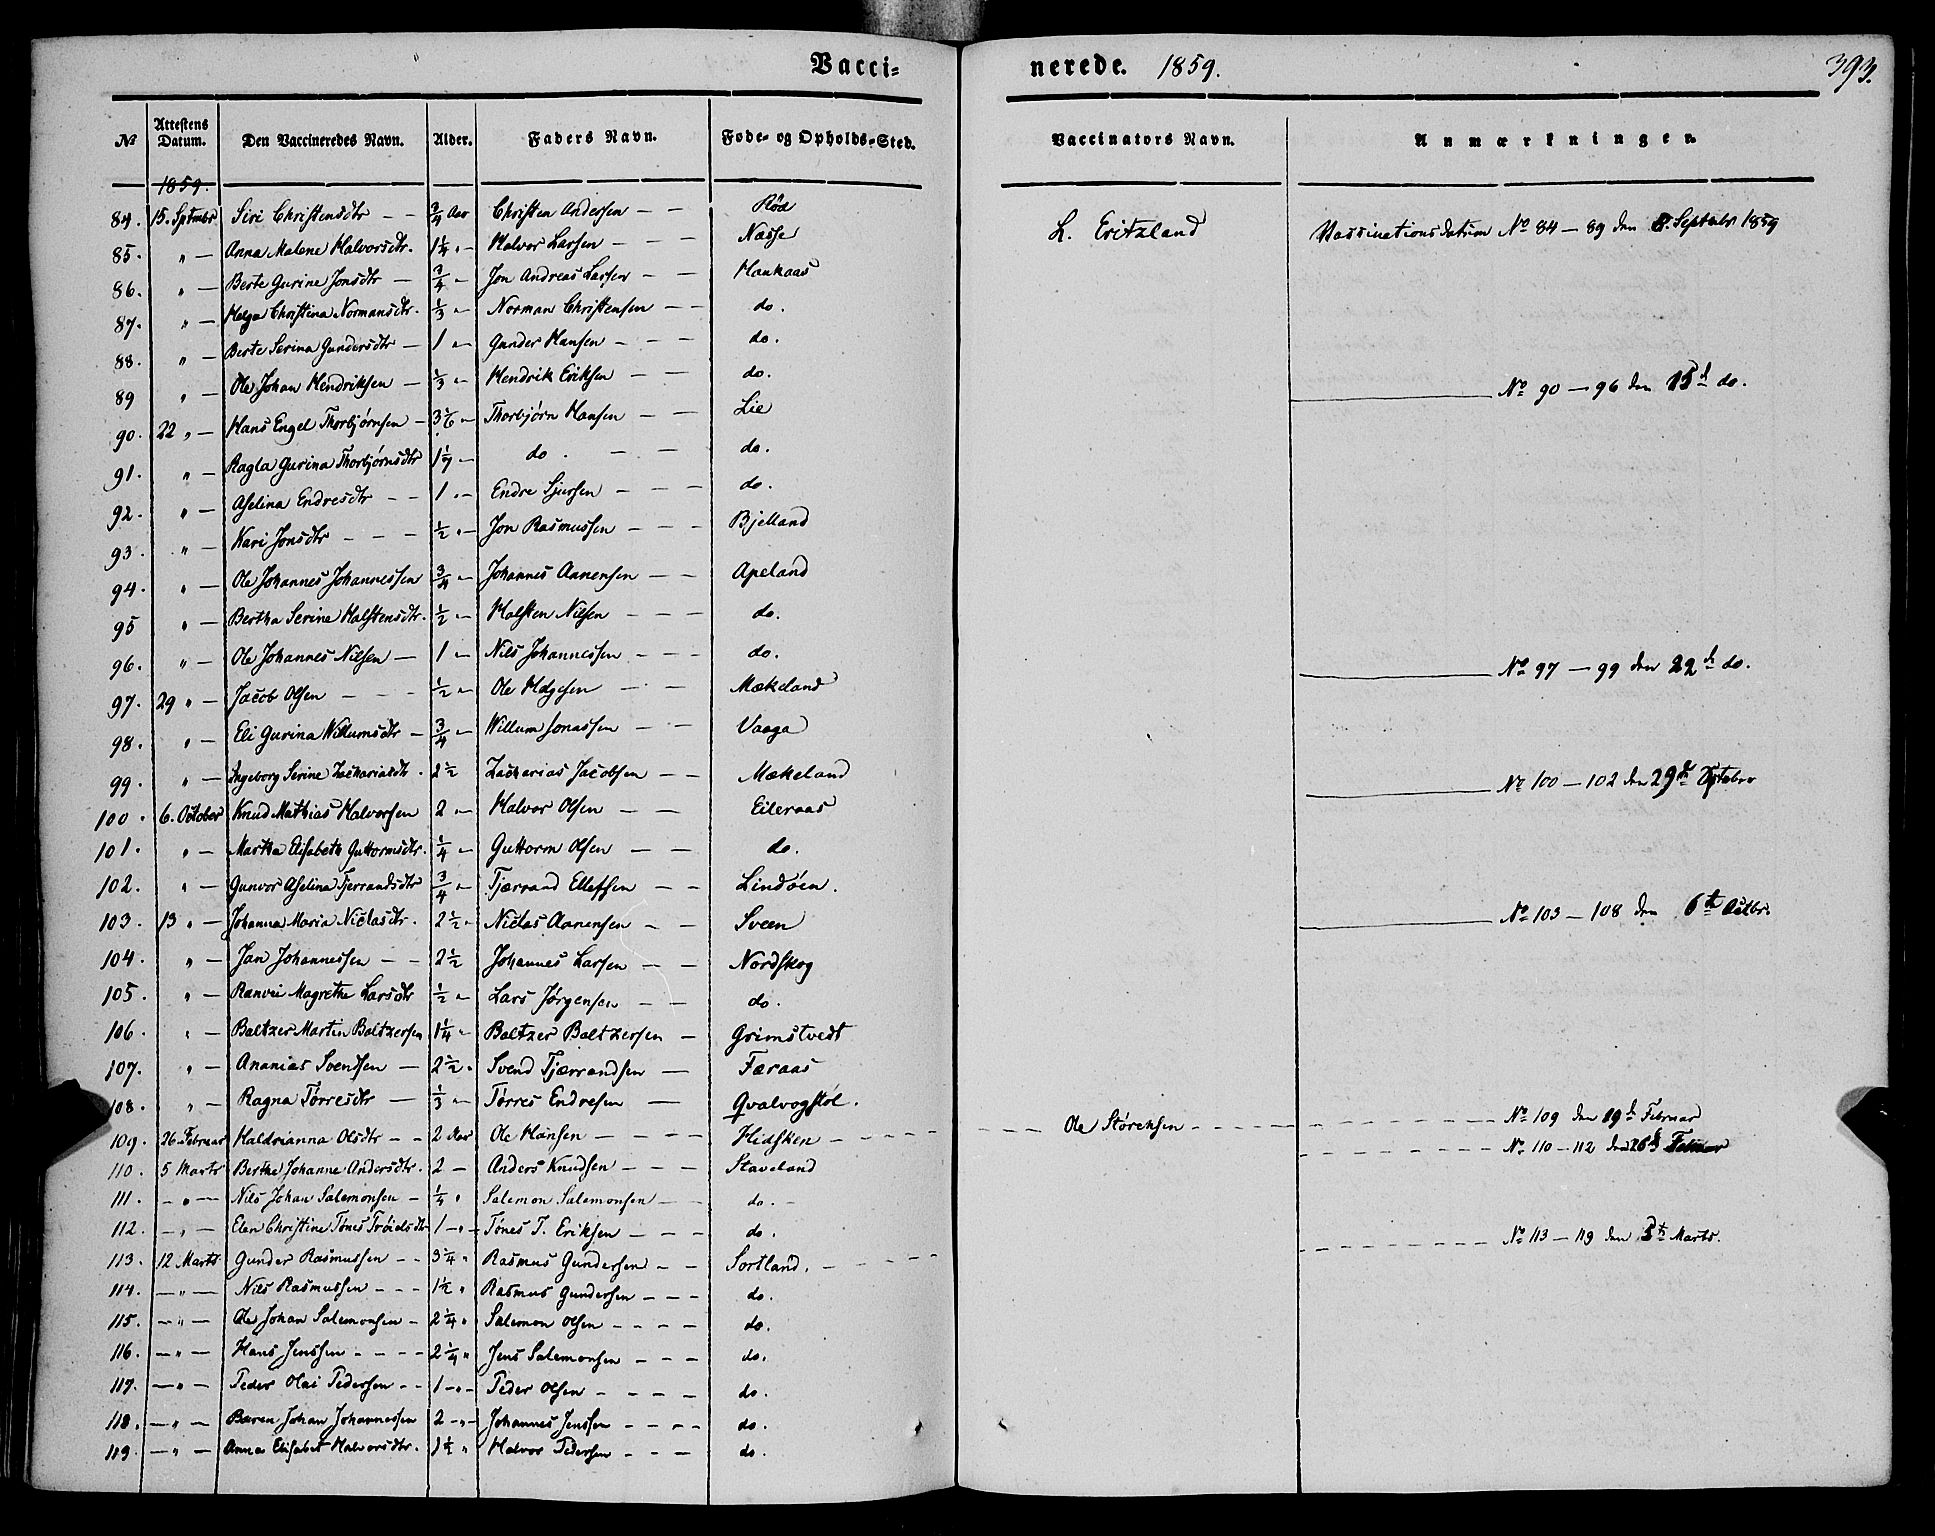 Vacci- nerede. 1859. 393.
№ Attestens Datum. Den Vaccineredes Navn. Alder. Faders Navn. Føde- og Opholds-Sted. Vaccinators Navn. Anmærkninger.
1859.
84. 15. Sptmbr Siri Christensdtr — — 3/4 Aar Christen Andersen — — Rød L. Eritzland Vassinationsdatum No 84 — 89 den 8. Septebr 1859
85. " — Anna Malene Halvorsdtr. 1 1/4 " Halvor Larsen — — Næsse
86. " — Berte Gurine Jonsdtr — 3/4 — Jon Andreas Larsen — — Haukaas
87. " — Helga Christina Normansdtr. 1/3 " Norman Christensen — — do.
88. " — Berte Serina Gundersdtr — 1 " Gunder Hansen — — — do.
89 " — Ole Johan Hendriksen — 1/3 " Hendrik Eriksen — — do.
90. 22 " — Hans Engel Thorbjørnsen — 3 1/6 — Thorbjørn Hansen — — Lie No 90 — 96 den 15d do.
91. " — Ragla Gurina Thorbjørnsdtr 1 1/7 — do. — — do.
92. " — Aselina Endresdtr — — 1 " — Endre Sjursen — — — do.
93. " — Kari Jonsdtr — — — 1/2 " — Jon Rasmussen — — — Bjelland
94. " — Ole Johannes Johannessen 3/4 — Johannes Aanensen — — Apeland
95 " — Bertha Serine Halstensdtr. 1/2 " — Halsten Nilsen — — — do.
96. " — Ole Johannes Nilsen — 1 — Nils Johannessen — — do.
97. 29 " — Jacob Olsen — — — 1/2 " Ole Helgesen — — Mækeland No 97 — 99 den 22d do.
98. " — Eli Gurina Willumsdtr — 3/4 — Willum Jonassen — — Vaaga
99. " — Ingeborg Serine Zachariasdtr. 2 1/2 Zacharias Jacobsen — — Mækeland
100. 6. October Knud Mathias Halvorsen 2 — Halvor Olsen — — Eileraas No 100 — 102 den 29de Sptebr
101. " — Martha Elisabeth Guttormsdtr. 1/4 — Guttorm Olsen — — do.
102. " — Gunvor Aselina Tjerrandsdtr 3/4 " Tjærrand Ellefsen — — Lindøen.
103. 13 " — Johanna Maria Niclasdtr. 2 1/2 " Niclas Aanensen — — Sveen No 103 — 108 den 6te Octbr.
104. " — Jan Johannessen — — 2 1/2 Johannes Larsen — — Nordskog
105. " — Rænvei Magrethe Larsdtr 1/2 " Lars Jørgensen — — do.
106. " — Baltzer Martin Baltzersen 1 1/4 " Baltzer Baltzersen — Grimstvedt
107. " — Ananias Svendsen — 2 1/2 " Svend Tjærrandsen — Færaas
108. " — Ragna Tørresdtr — 1/3 " Tørres Endresen — Qvalvogstøl.
109. 26. Februar Haldrianna Olsdtr — — 2 Aar Ole Hansen — — — — Hidsken Ole Størensen No 109 den 19d Februar
110. 5 Marts Berthe Johanne Andersdtr. 2 — Anders Knudsen — — — Staveland No 110 — 112 den 26d Februar
111. — " — Nils Johan Salemonsen — 1/4 " Salemon Salemonsen — — do.
112. — " — Elen Christine Tønes Trøidsdtr 1 — " — Tønes T. Eriksen — — — do.
113. 12 Marts Gunder Rasmussen — — 3 1/4 " Rasmus Gundersen — — Sortland. No 113 — 119 den 5te Marts.
114. — " — Nils Rasmussen — — — 1 1/2 " Rasmus Gundersen — — — do.
115. — " — Ole Johan Salemonsen — 2 1/4 " Salemon Olsen — — — — do.
116. — " — Hans Jenssen — — — — 2 1/4 " Jens Salemonsen — — — do.
117. — " — Peder Olai Pedersen — — 1 — " — Peder Olsen — — — — do.
118. — " — Bæren Johan Johannessen 2 — " — Johannes Jenssen — — — — do.
119. — " — Anna Elisabet Halvorsdtr. 1 1/2 " Halvor Pedersen — — — do.